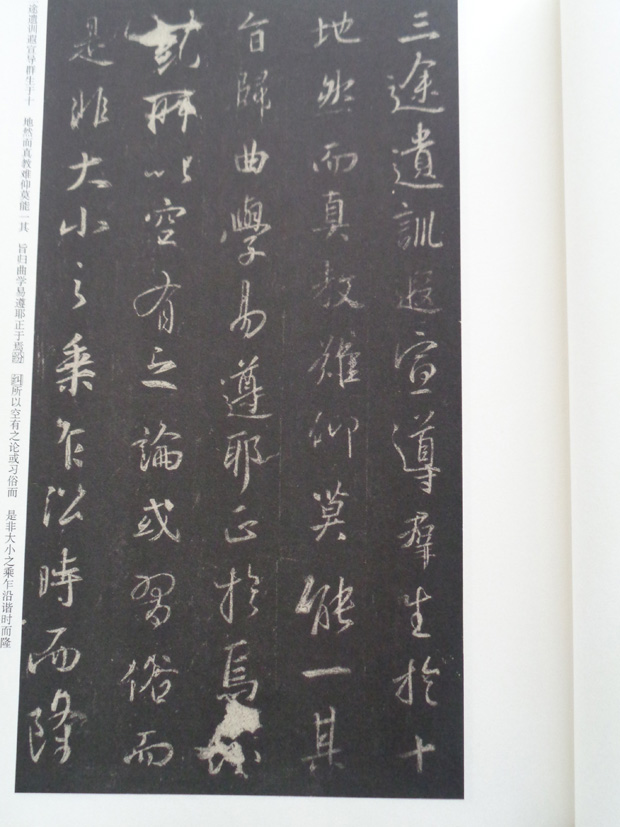 三途遺訓遐宣導群生於十
地然而真教難仰莫能一其
旨歸曲學易遵耶正於焉
所以空有之論或習俗而
是非大小之乘乍沿時而隆
途遗训遐宣导群生于十 地然而真教难仰莫能一其 旨归曲学易遵耶正于焉 所以空有之论或习俗而 是非大小之乘乍沿谐时而隆